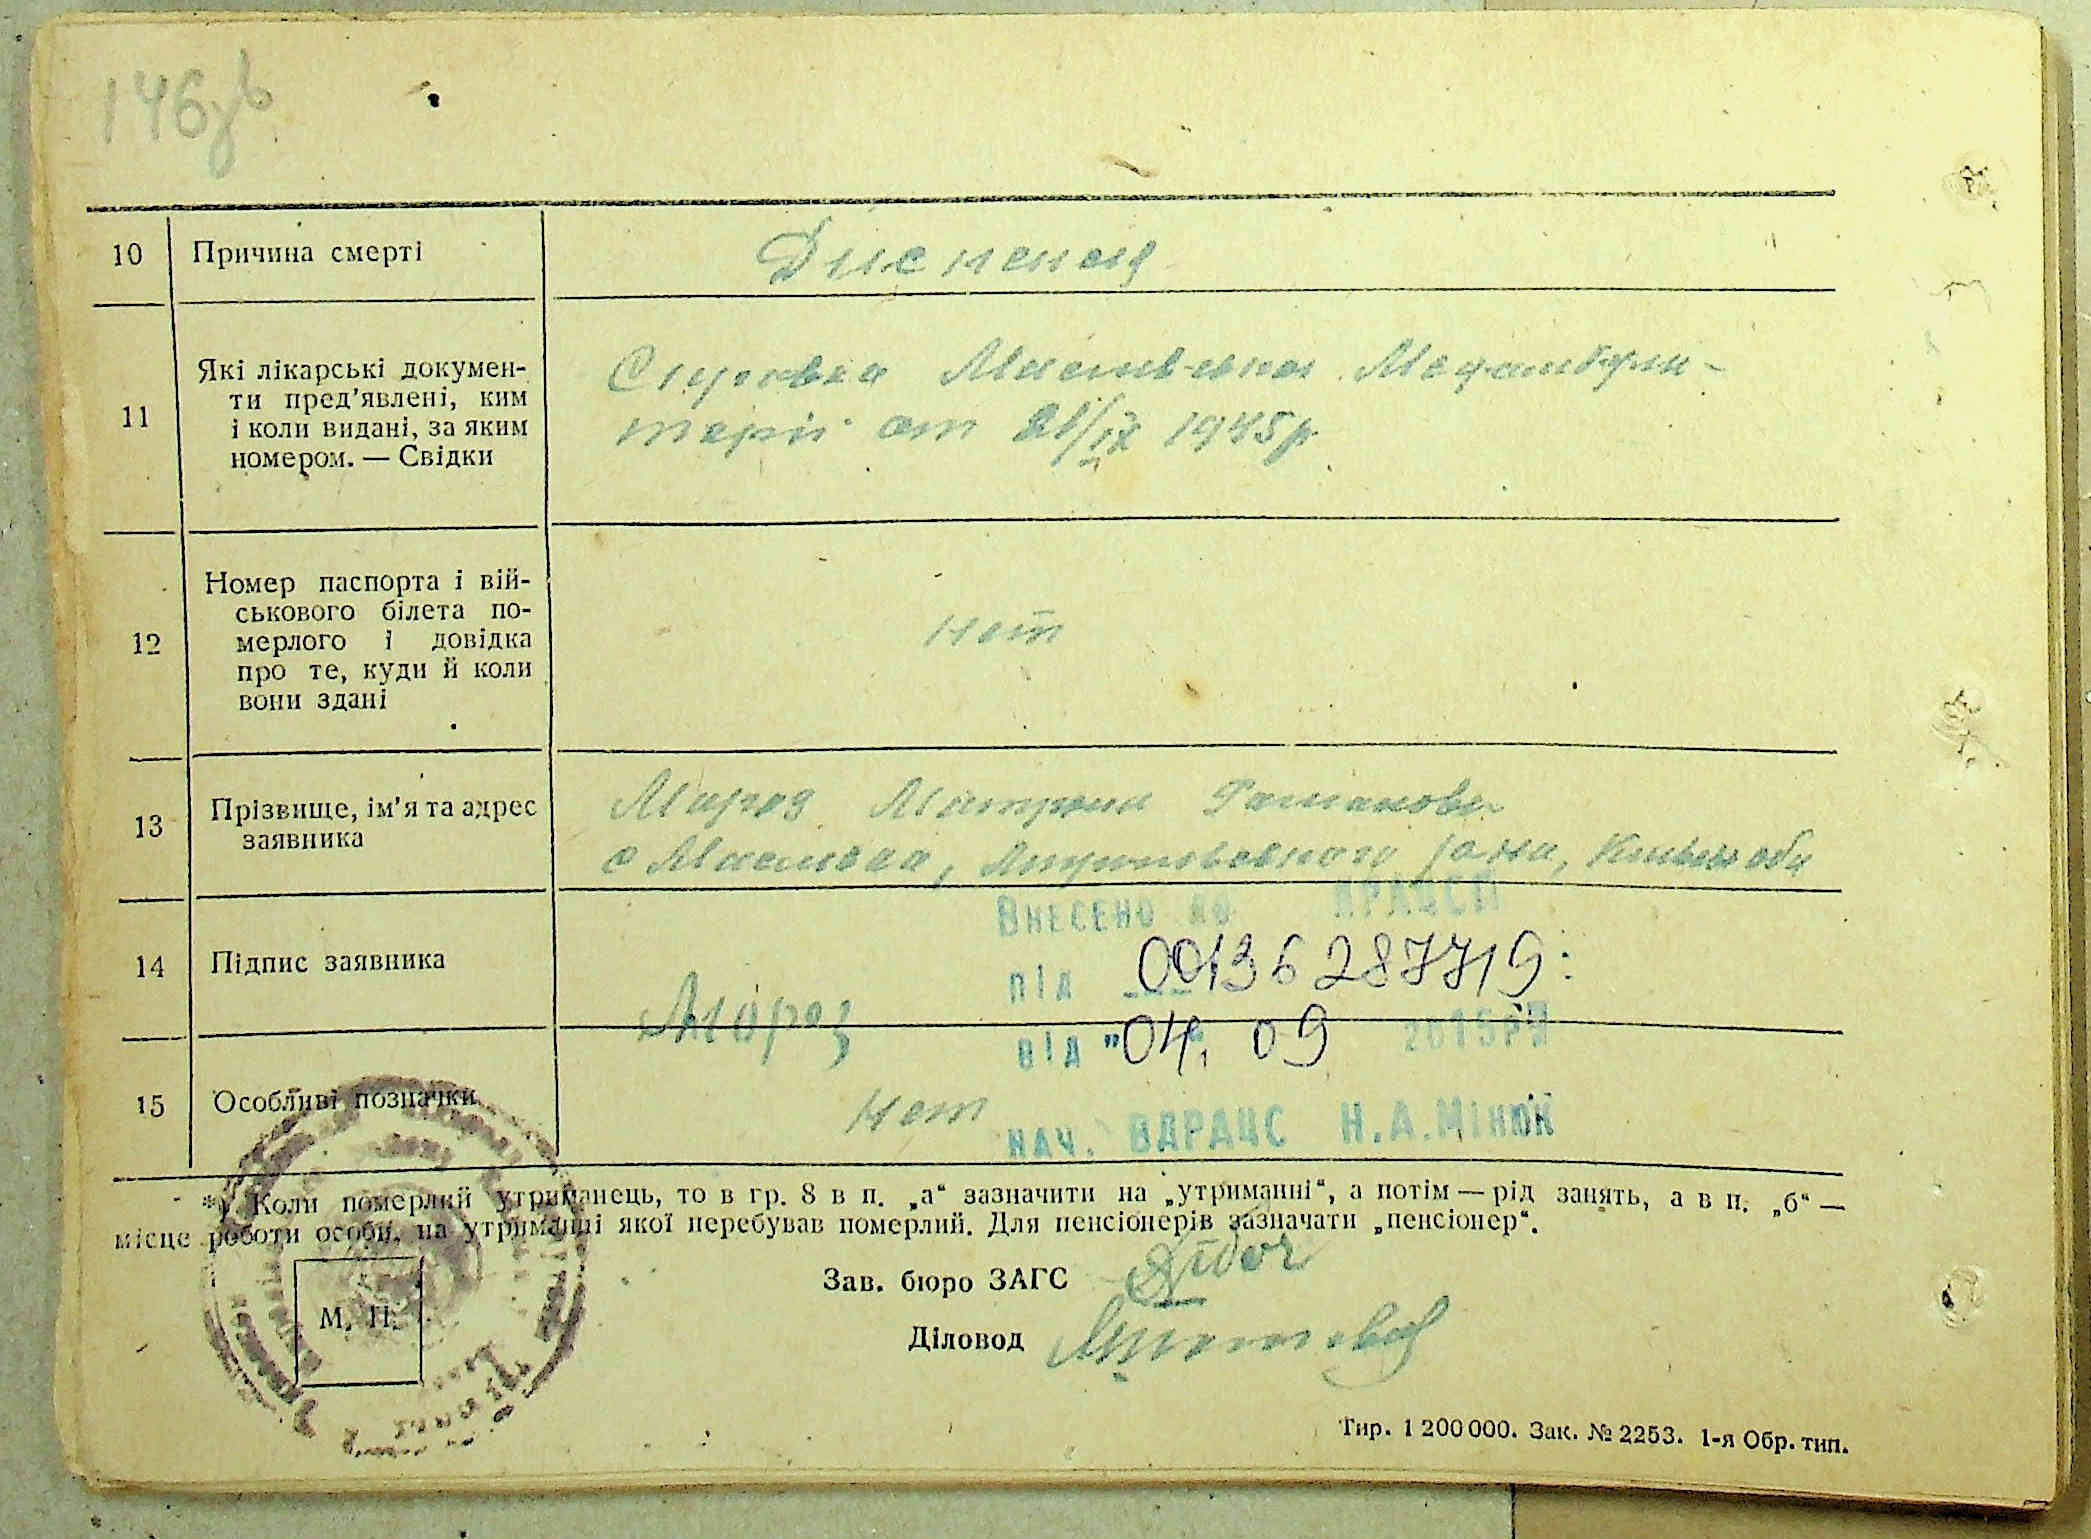 146зв
10 Причина смерті Диспепсия
11 Які лікарські докумен-
ти пред'явлені, ким
і коли видані, за яким
номером. — Свідки
Справка Масловской Медамбула-
торіі от 21/IX 1945 р
12 Номер паспорта і вій-
ськового білета по-
мерлого і довідка
про те, куди й коли
вони здані
нет
13 Прізвище, ім'я та адрес
заявника
Мороз Матрена Романовна
с Масловка, району, Киевск обл
Внесено до ДРАЦСГ
14 Підпис заявника
під 00136287719
Мороз
від "04. 09 2015р
15 Особливі позначки нет
нач. ВДРАЦС Н.А.Мінюк
*) Коли померлий утриманець, то в гр. 8 в п. „а“ зазначити на „утриманні“, а потім — рід занять, а в п. „б“ —
місце роботи особи, на утриманні якої перебував померлий. Для пенсіонерів зазначати „пенсіонер“.
Зав. бюро ЗАГС
М. П.
Діловод
Тир. 1 200 000. Зак. № 2253. 1-я Обр. тип.